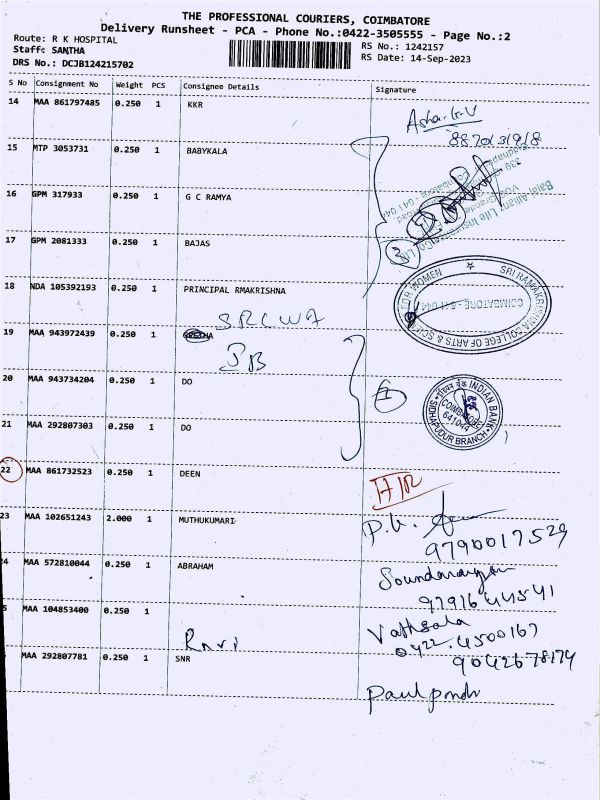 THE PROFESSIONAL COURIERS, COIMBATORE
Delivery Runsheet - PCA - Phone No.:0422-3505555 - Page No.:2
Route: R K HOSPITAL
RS No.: 1242157
Staff: SANTHA
RS Date: 14-Sep-2023
DRS No.: DCJB124215702
S No Consignment No Weight PCS Consignee Details Signature
14 MAA 861797485 0.250 1 KKR
15 MTP 3053731 0.250 1 BABYKALA
16 GPM 317933 0.250 1 G C RAMYA
Bajaj Allianz Life Insurance Co. Ltd
17 GPM 2081333 0.250 1 BAJAS
3
18 NDA 105392193 0.250 1 PRINCIPAL RMAKRISHNA
SRI RAMAKRISHNA COLLEGE OF ARTS & SCIENCE FOR WOMEN
COIMBATORE - 641 044
SRCWA
19 MAA 943972439 0.250 1
JB
20 MAA 943734204 0.250 1 DO
INDIAN BANK
COIMBATORE
641044
SIDHAPUDUR BRANCH
21 MAA 292807303 0.250 1 DO
22 MAA 861732523 0.250 1 DEEN
23 MAA 102651243 2.000 1 MUTHUKUMARI
9790017529
24 MAA 572810044 0.250 1 ABRAHAM
Soundarayan
MAA 104853400 0.250 1
Vathsala
0422.4500167
Ravi
9042678174
MAA 292807781 0.250 1 SNR